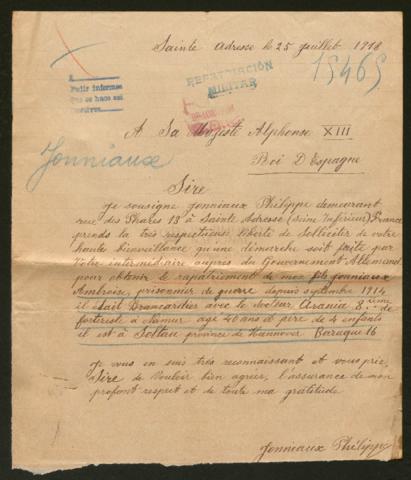 Sainte Adresse le 25 juillet 1918
REPATRIACIÓN
MILITAR
15465
Pedir informes
que se hace así
A Sa Majesté Alphonse XIII
Roi D'Espagne
Jonniaux
Sire
Je sousigne Jonniaux Philippe demeurant
rue des Phares 13 à Sainte Adresse (Seine Inférieure) France
prends la très respectieuse liberté de Solliciter de votre
haute bienveillance qu'une démarche soit faite par
Votre intermédiaire auprès du Gouvernement Allemand
pour obtenir le rapatriement de mon fils Jonniaux
Ambroise, prisonnier de guerre depuis septembre 1914
il était Brancardier avec le docteur Arania 8 ième de
forteriste à Namur agé 40 ans et père de 4 enfants
il est à Soltau province de Hannover Baraque 16
Je vous en suis très reconnaissant et vous prie
Sire de Vouloir bien agréer, l'assurance de mon
profont respect et de toute ma gratitude
Jonniaux Philippe